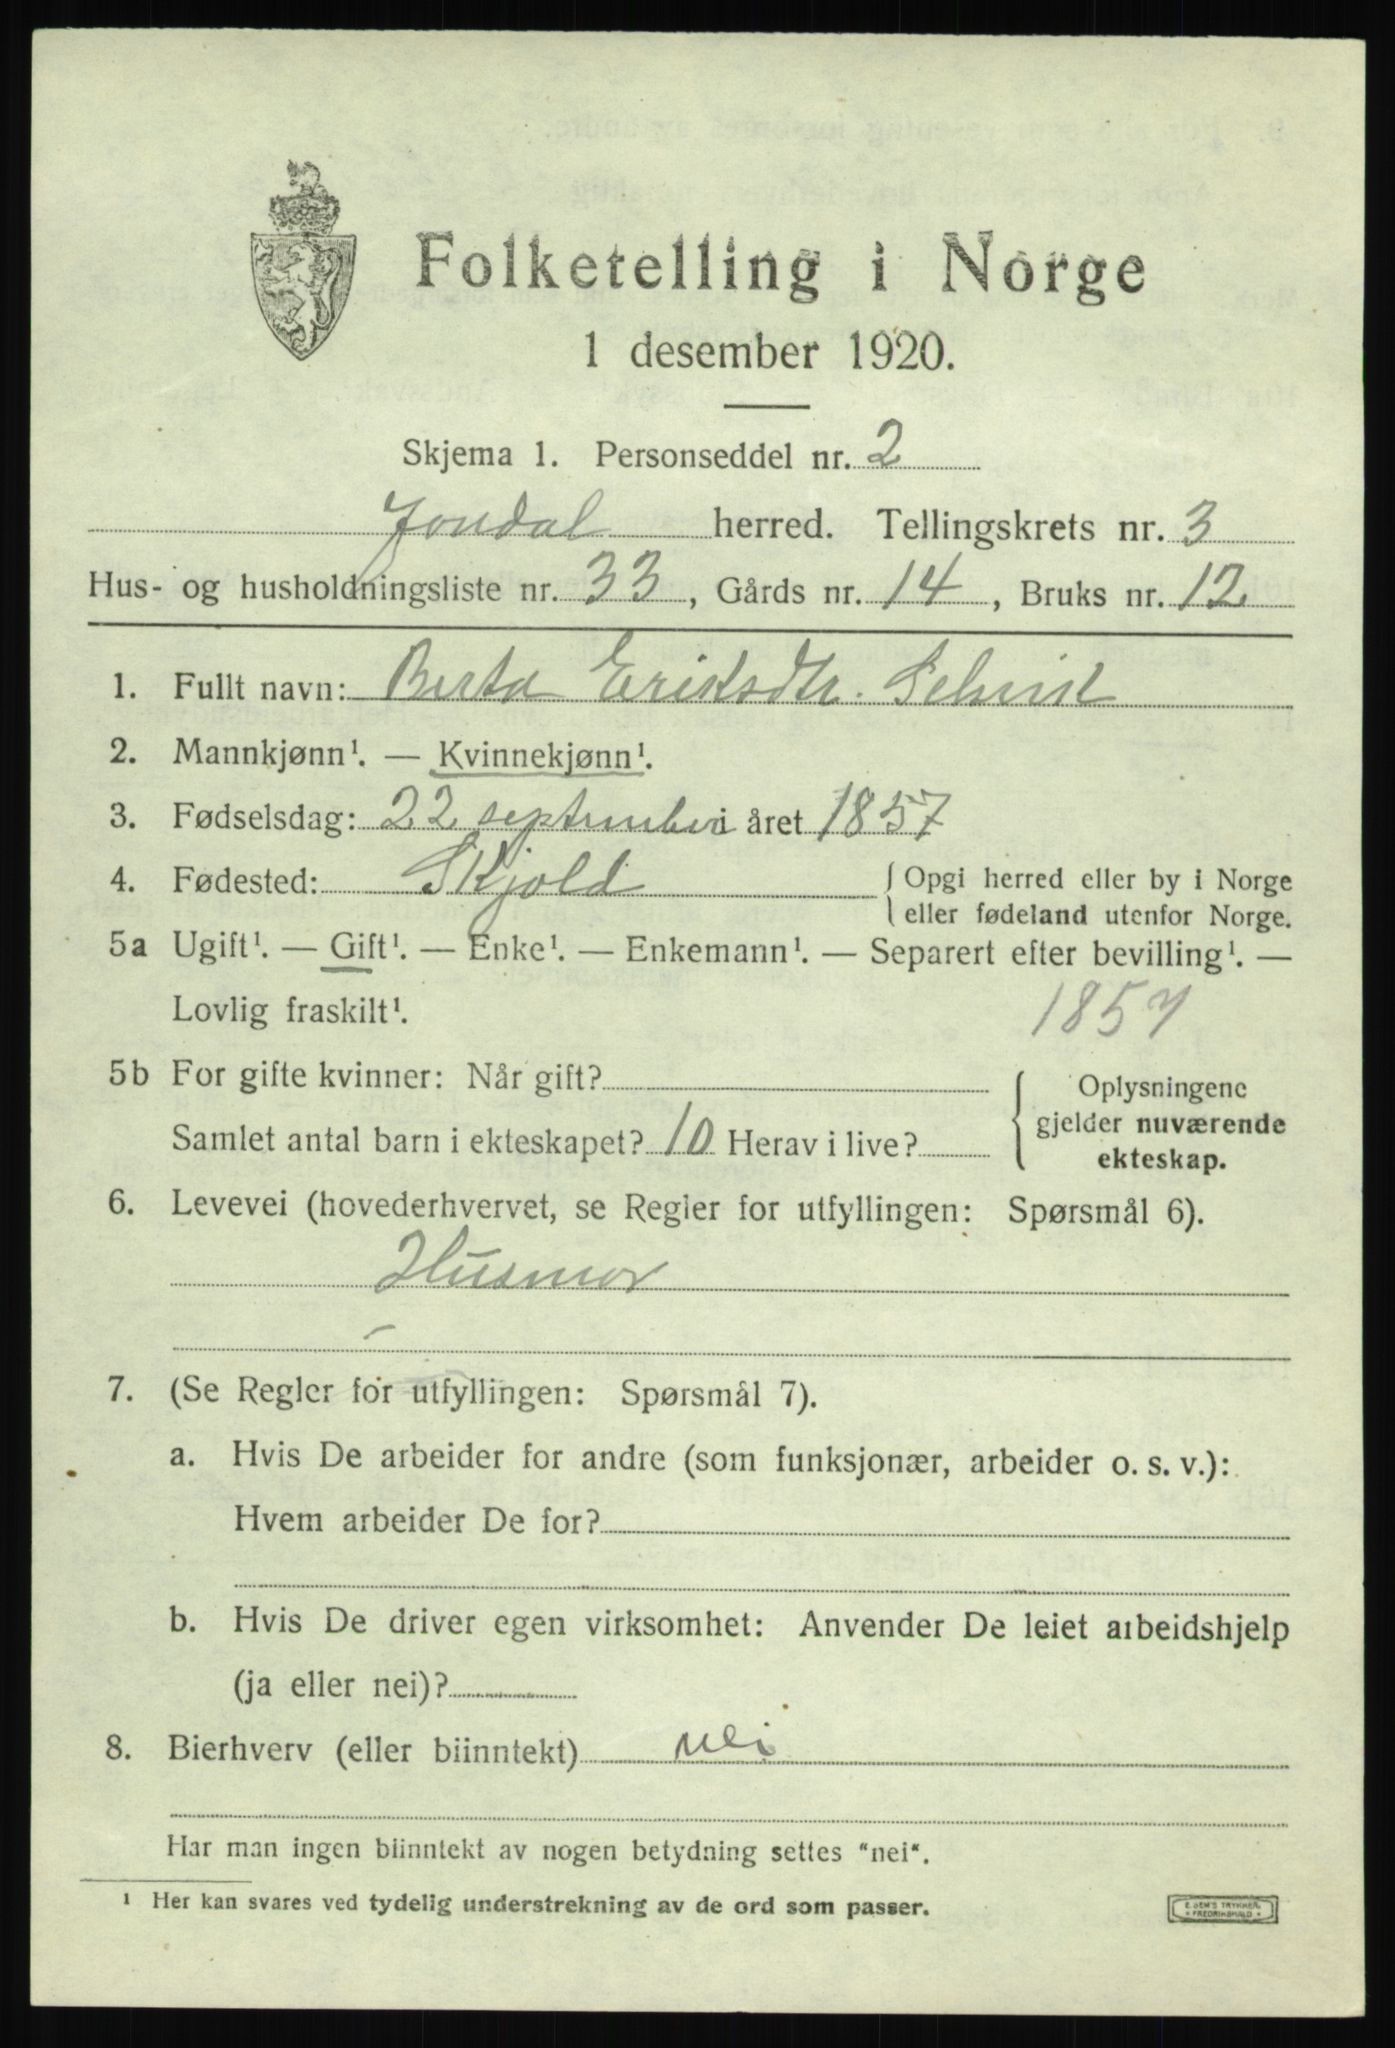 Folketelling i Norge
1 desember 1920.
Skjema 1. Personseddel nr. 2
Jondal herred. Tellingskrets nr. 3
Hus- og husholdningsliste nr. 33, Gårds nr. 14, Bruks nr. 12
1. Fullt navn: Berta Eriksdtr. Selvik
2. Mannkjønn¹. — Kvinnekjønn¹.
3. Fødselsdag: 22 september i året 1857
4. Fødested: Skjold { Opgi herred eller by i Norge
eller fødeland utenfor Norge.
5a Ugift¹. — Gift¹. — Enke¹. — Enkemann¹. — Separert efter bevilling¹. —
Lovlig fraskilt¹. 1857
5b For gifte kvinner: Når gift?
Samlet antal barn i ekteskapet? 10 Herav i live?
{ Oplysningene
gjelder nuværende
ekteskap.
6. Levevei (hovederhvervet, se Regler for utfyllingen: Spørsmål 6).
Husmor
–
7. (Se Regler for utfyllingen: Spørsmål 7).
a. Hvis De arbeider for andre (som funksjonær, arbeider o. s. v.):
Hvem arbeider De for?
b. Hvis De driver egen virksomhet: Anvender De leiet arbeidshjelp
(ja eller nei)?
8. Bierhverv (eller biinntekt) nei
Har man ingen biinntekt av nogen betydning settes "nei".
¹ Her kan svares ved tydelig understrekning av de ord som passer.
E. SEM'S TRYKKERI
FREDRIKSHALD